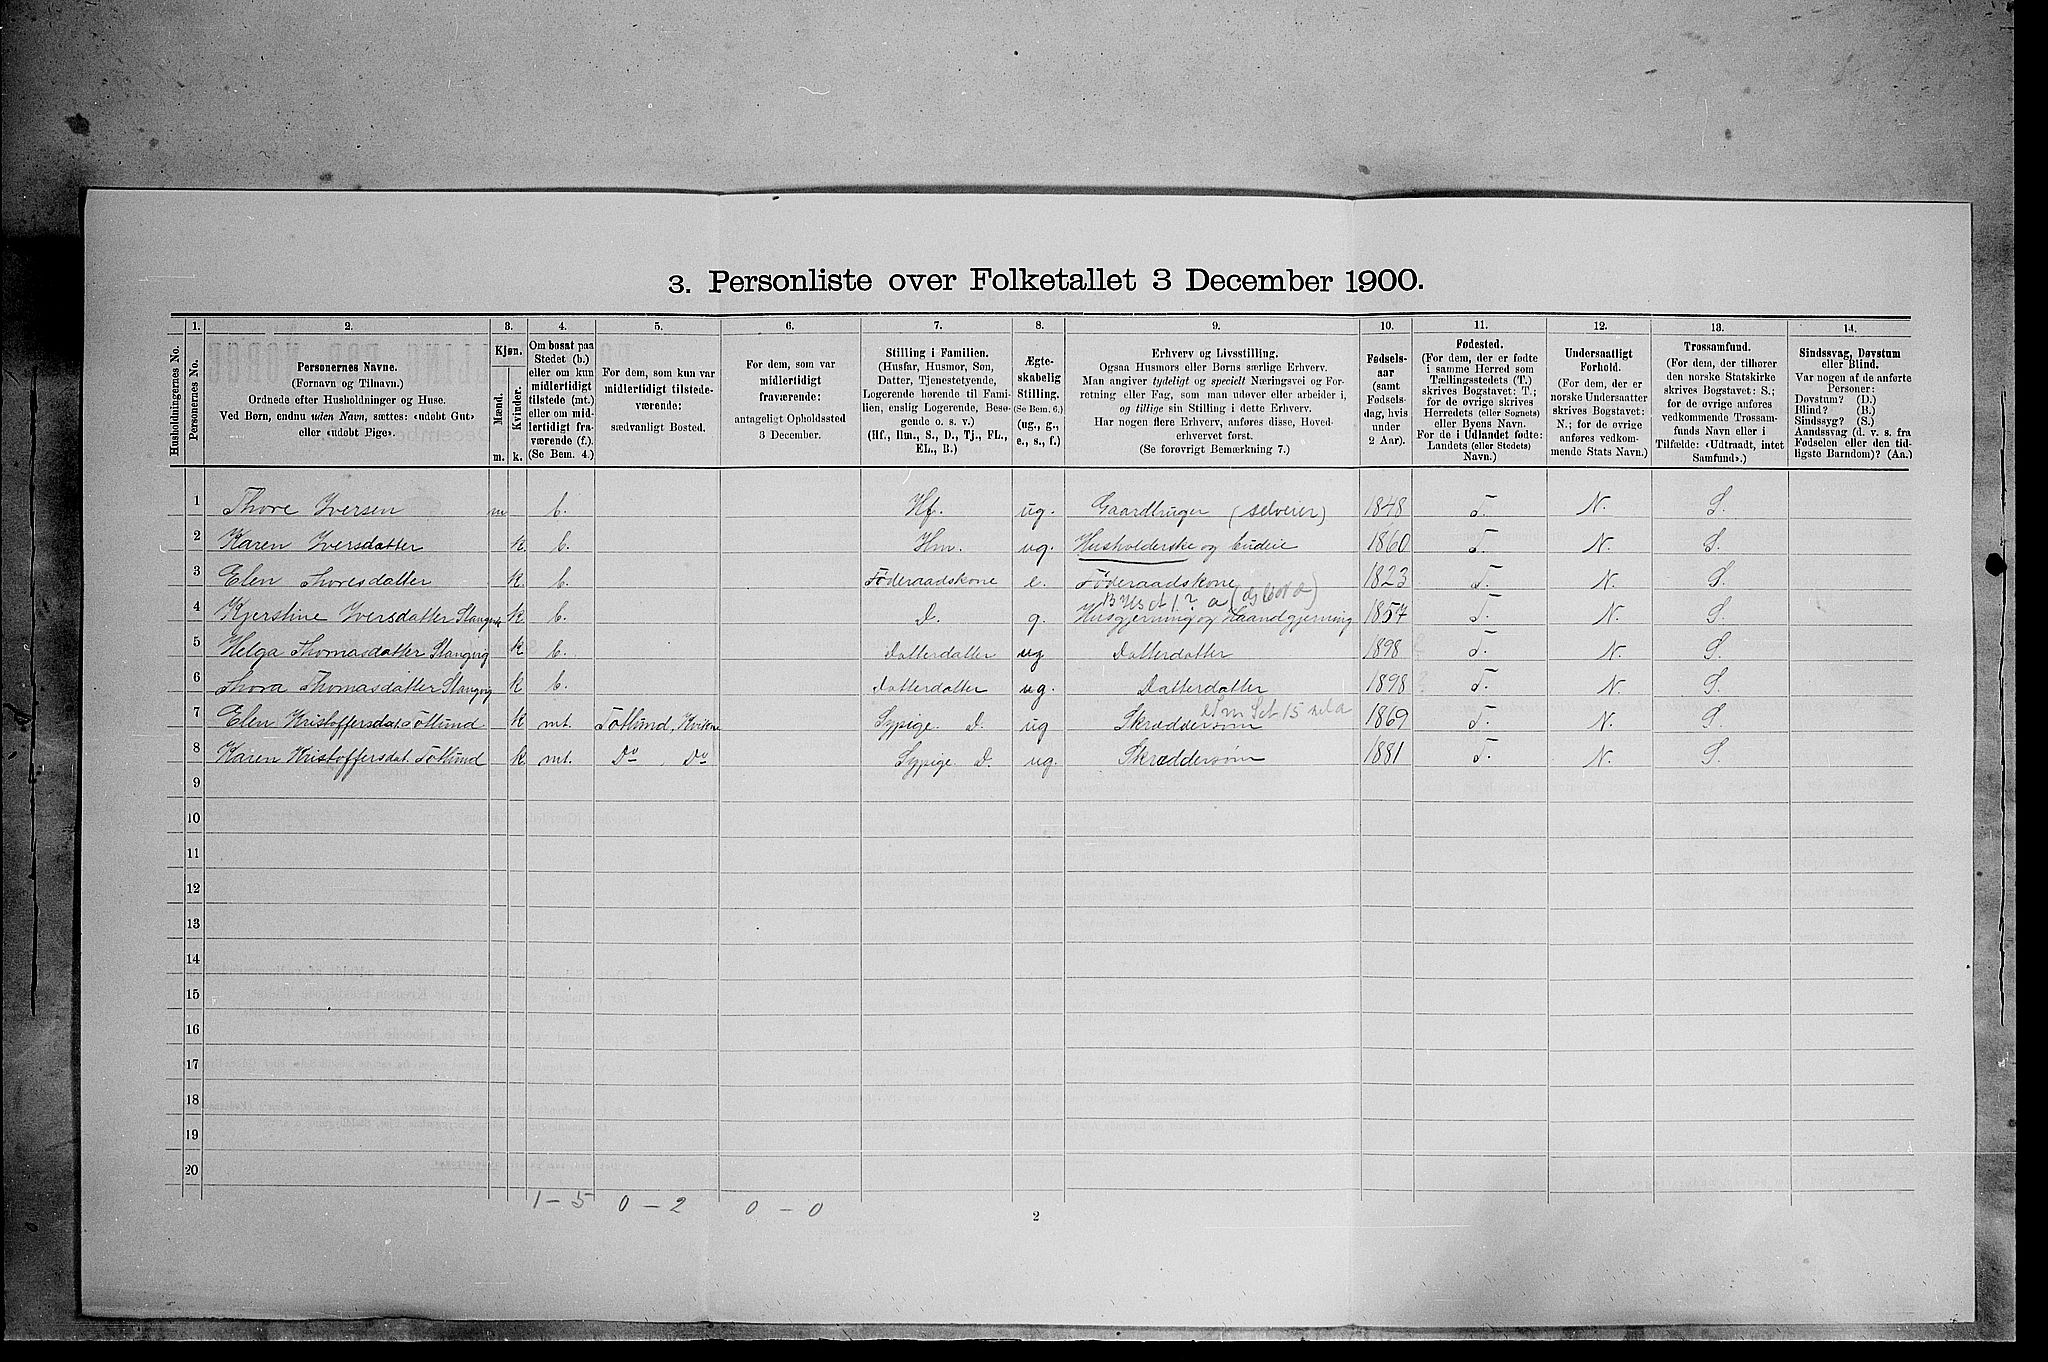 3. Personliste over Folketallet 3 December 1900.
Husholdningernes No.
1.
Personernes No.
2.
Personernes Navne.
(Fornavn og Tilnavn.)
Ordnede efter Husholdninger og Huse.
Ved Børn, endnu uden Navn, sættes: «udøbt Gut»
eller «udøbt Pige».
3.
Kjøn.
Mænd.
Kvinder.
m.
k.
4.
Om bosat paa
Stedet (b.)
eller om kun
midlertidigt
tilstede (mt.)
eller om mid-
lertidigt fra-
værende (f.).
(Se Bem. 4.)
5.
For dem, som kun var
midlertidigt tilstede-
værende:
sædvanligt Bosted.
6.
For dem, som var
midlertidigt
fraværende:
antageligt Opholdssted
3 December.
7.
Stilling i Familien.
(Husfar, Husmor, Søn,
Datter, Tjenestetyende,
Logerende hørende til Fami-
lien, enslig Logerende, Besø-
gende o. s. v.)
(Hf., Hm., S., D., Tj., FL.,
EL., B.)
8.
Ægte-
skabelig
Stilling.
(Se Bem. 6.)
(ug., g.,
e., s., f.)
9.
Erhverv og Livsstilling.
Ogsaa Husmors eller Børns særlige Erhverv.
Man angiver tydeligt og specielt Næringsvei og For-
retning eller Fag, som man udøver eller arbeider i,
og tillige sin Stilling i dette Erhverv.
Har nogen flere Erhverv, anføres disse, Hoved-
erhvervet først.
(Se forøvrigt Bemærkning 7.)
10.
Fødsels-
aar
(samt
Fødsels-
dag, hvis
under
2 Aar).
11.
Fødested.
(For dem, der er fødte
i samme Herred som
Tællingsstedets (T.)
skrives Bogstavet: T.;
for de øvrige skrives
Herredets (eller Sognets)
eller Byens Navn.
For de i Udlandet fødte:
Landets (eller Stedets)
Navn.)
12.
Undersaatligt
Forhold.
(For dem, der er
norske Undersaatter
skrives Bogstavet:
N.; for de øvrige
anføres vedkom-
mende Stats Navn.)
13.
Trossamfund.
(For dem, der tilhører
den norske Statskirke
skrives Bogstavet: S.;
for de øvrige anføres
vedkommende Trossam-
funds Navn eller i
Tilfælde: «Udtraadt, intet
Samfund».)
14.
Sindssvag, Døvstum
eller Blind.
Var nogen af de anførte
Personer:
Døvstum? (D.)
Blind? (B.)
Sindssyg? (S.)
Aandssvag (d. v. s. fra
Fødselen eller den tid-
ligste Barndom)? (Aa.)
1 Thore Iversen m b. Hf. ug. Gaardbruger (selveier) 1848 T. N. S.
2 Karen Iversdatter k b. Hm. ug. Husholderske og budeie 1860 T. N. S.
3 Elen Thoresdatter k b. Föderaadskone e. Föderaadskone 1823 T. N. S.
4 Kjerstine Iversdatter k b. D. g. Husgjerning og Haandgjerning 1857 T. N. S.
5 Helga Thomasdatter k b. Datterdatter ug Datterdatter 1898 T. N. S.
6 Thora Thomasdatter k b. Datterdatter ug. Datterdatter 1898 T. N. S.
7 Elen Kristoffersdat. Tötlund k mt. Tötlund, Sypige D. ug Skræddersøm 1869 T. N. S.
8 Karen Kristoffersdat. Tötlund k mt. Do Do Sypige D. ug. Skræddersøm 1881 T. N. S.
9
10
11
12
13
14
15
16
17
18
19
20
1 – 5 0 – 2 0 – 0
2